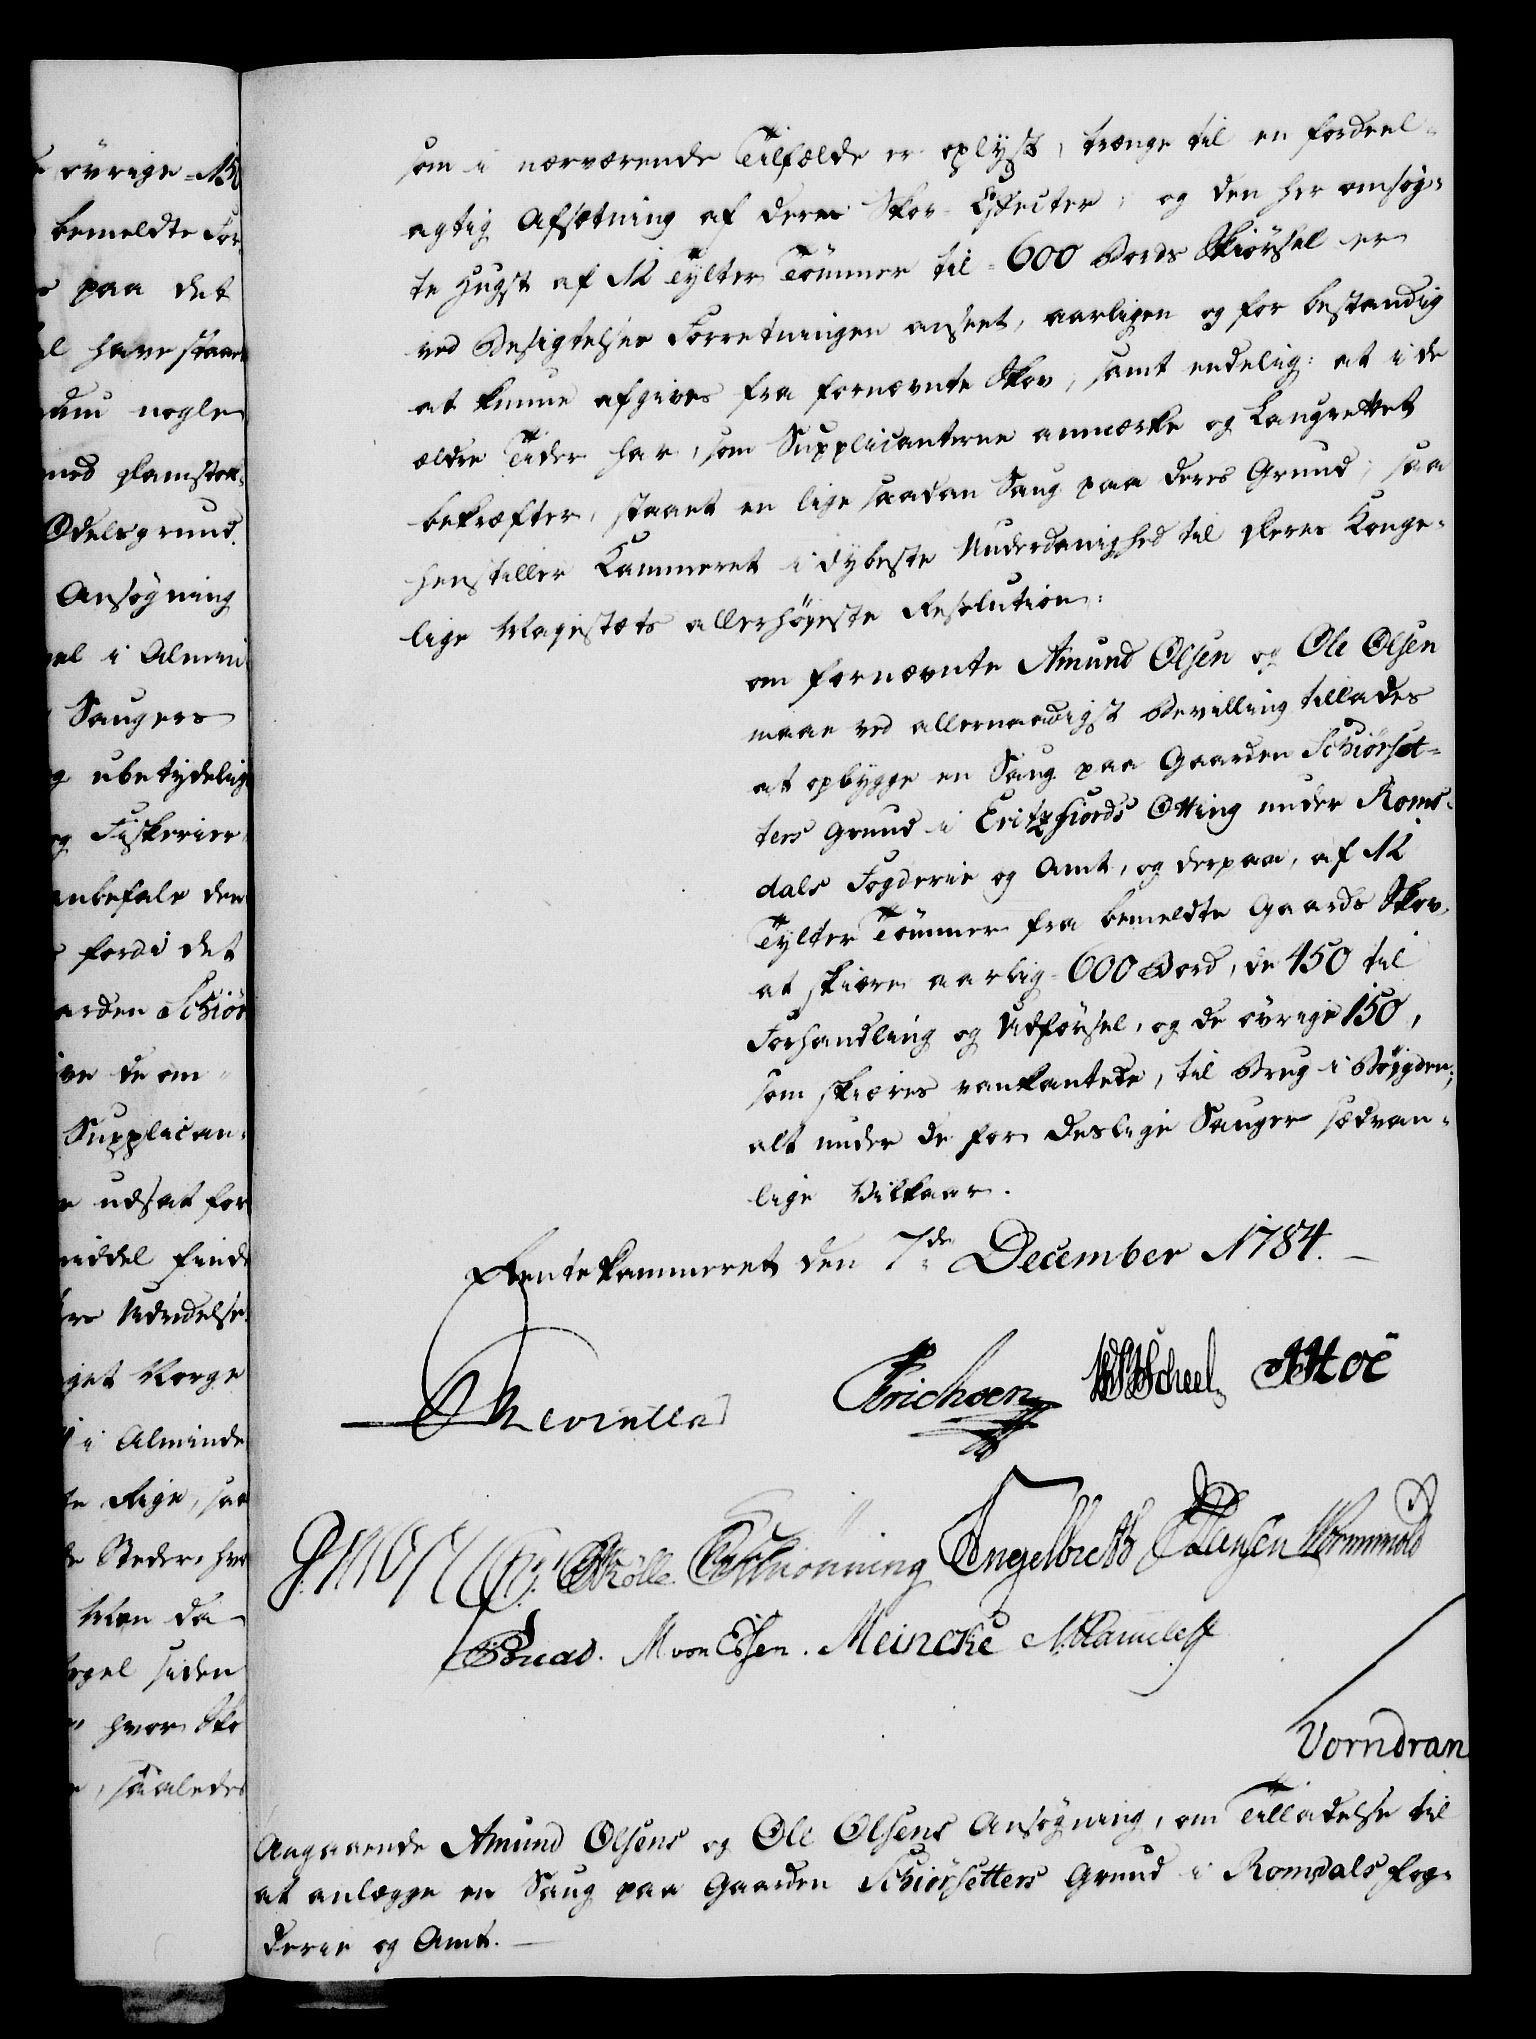 övrige 150
bemeldte For-
paa det
have staaet
nogle
med
Odelsgrund.
Ansøgning
i Almin
Saugers
og ubetydelig
og Fiskerier
anbefale den
fordi det
Gaarden Schiör
de om
Supplican-
udsat for
middel finde
Udvidelse
Norge
i Alminde
Rige, saa
Steder, hvor
Men da
siden
hvor Sko
, saaledes
som i nærværende Tilfælde er oplyst, trænge til en fordeel-
agtig Afsætning af deres Skov-Effecter; og den her omsøg-
te Hugst af 12 Tylter Tömmer til 600 Bords Skiörsel er
ved Besigtelses Forretningen anseet, aarligen og for bestandig
at kunne afgives fra fornævnte Skov; samt endelig: at i de
ældre Tider har, som Supplicanterne anmærke og Laugrettet
bekræfter, staaet en lige saadan Saug paa deres Grund; saa
henstiller Kammeret i dybeste Underdanighed til Deres Konge-
lige Majestæts allerhöyeste Resolution:
om fornævnte Amund Olsen og Ole Olsen
maae ved allernaadigst Bevilling tillades
at opbygge en Saug paa Gaarden Schiörset-
ters Grund i Eritzfiords Otting under Roms-
dals Fogderie og Amt, og derpaa, af 12
Tylter Tömmer fra bemeldte Gaards Skov,
at skiære aarlig 600 Bord, de 450 til
Forhandling og Udförsel, og de övrige 150,
som skiæres vankantede, til Brug i Böygden;
alt under de for deslige Sauger sædvan-
lige Vilkaar.
Rentekammeret den 7de December 1784.
Erichsen WScheel Moe
Angelbreth Hansen Wormskiold
M von Essen. Meincke
Vorndran
Angaaende Amund Olsens og Ole Olsens Ansøgning, om Tilladelse til
at anlægge en Saug paa Gaarden Schiörsetters Grund i Romsdals Fog-
derie og Amt.